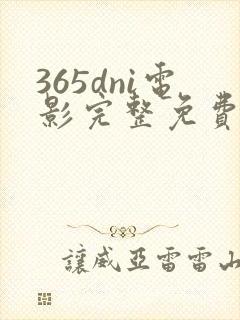 365dni電
影完整免費
讓威亞雷雷山